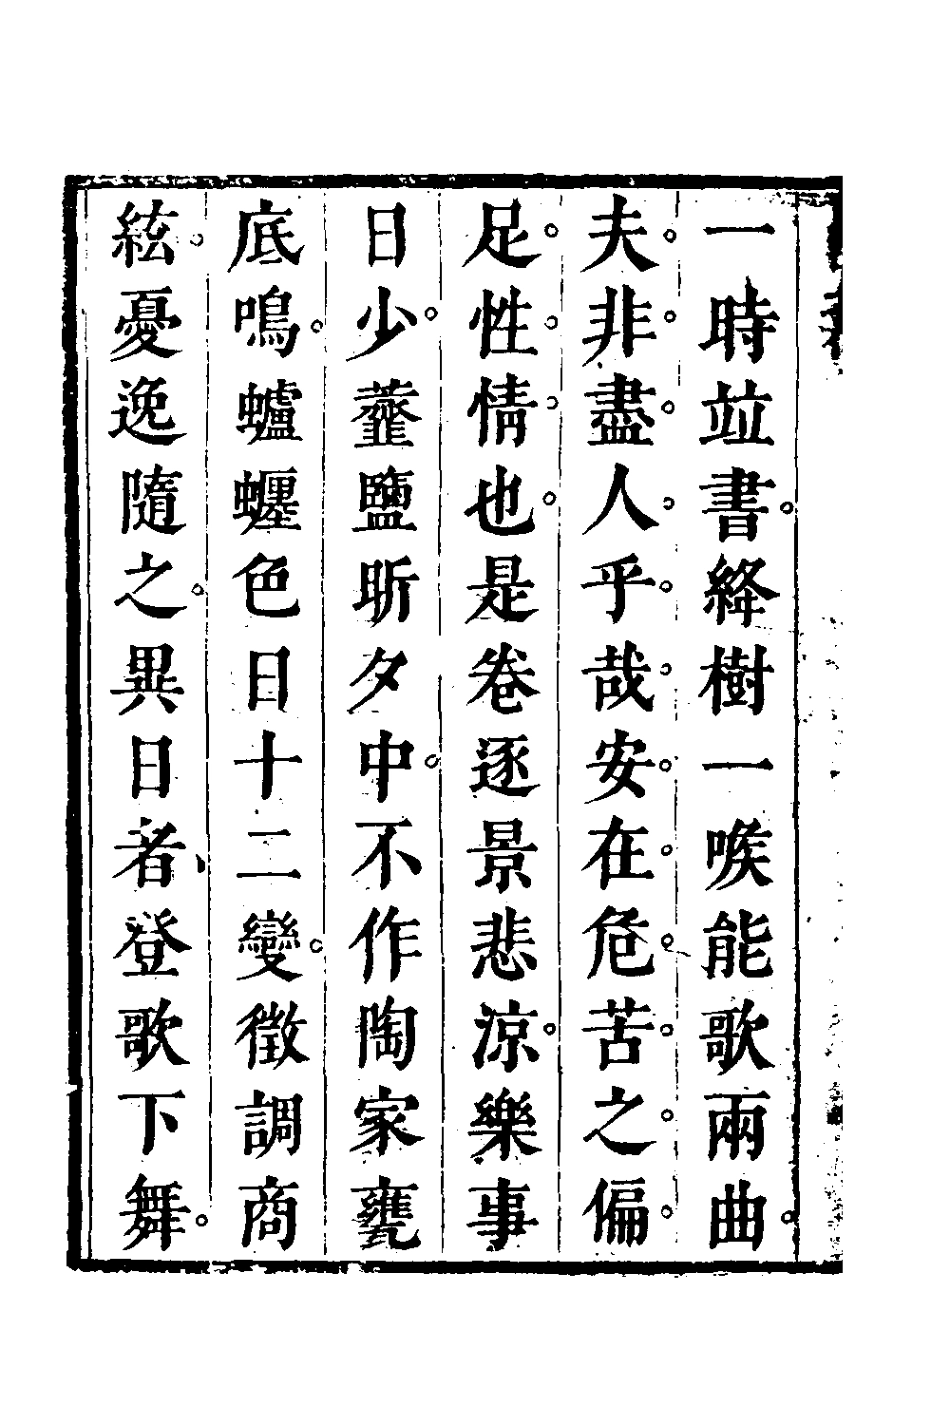 一時竝書。絳樹一喉能歌兩曲。
夫。非。盡。人。乎。哉。安。在。危。苦。之。偏。
足。性。情。也。是卷逐景悲涼。樂事
日少。虀鹽昕夕中。不作陶家甕
底鳴。蠦𧔥色日十二變。徵調商
絃。憂逸隨之。異日者、登歌下舞。